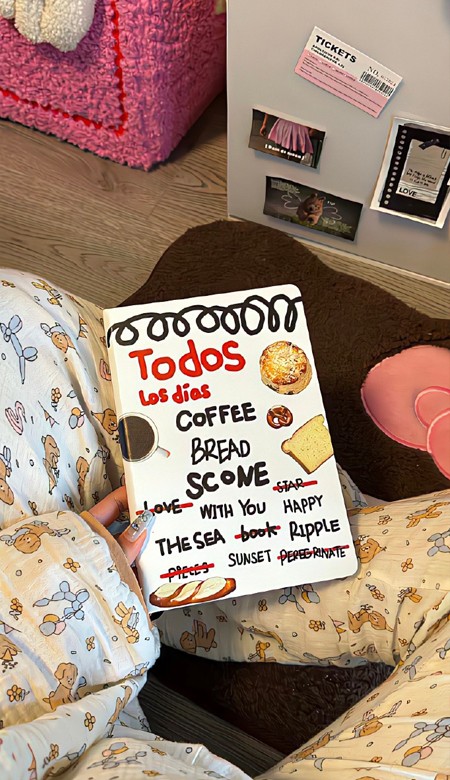 TICKETS
NO.
LOVE
Todos
los días
COFFEE
BREAD
SCONE
STAR
LOVE WITH YOU HAPPY
THE SEA book RIPPLE
PIECES SUNSET PEREGRINATE